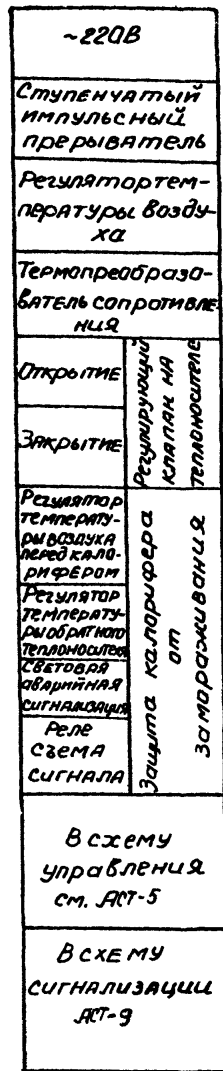 ~220В
Ступенчатый
импульсный
прерыватель
Регулятор тем-
пературы возду-
ха
Термопреобразо-
ватель сопротивле-
ния
Открытие
Закрытие
Регулирующий
клапан на
теплоносителе
Регулятор
температу-
ры воздуха
перед кало-
рифером
Регулятор
температу-
ры обратного
теплоносителя
Световая
аварийная
сигнализация
Реле
съема
сигнала
Защита калорифера
от
замораживания
В схему
управления
см. АСТ-5
В схему
сигнализации
АСТ-9